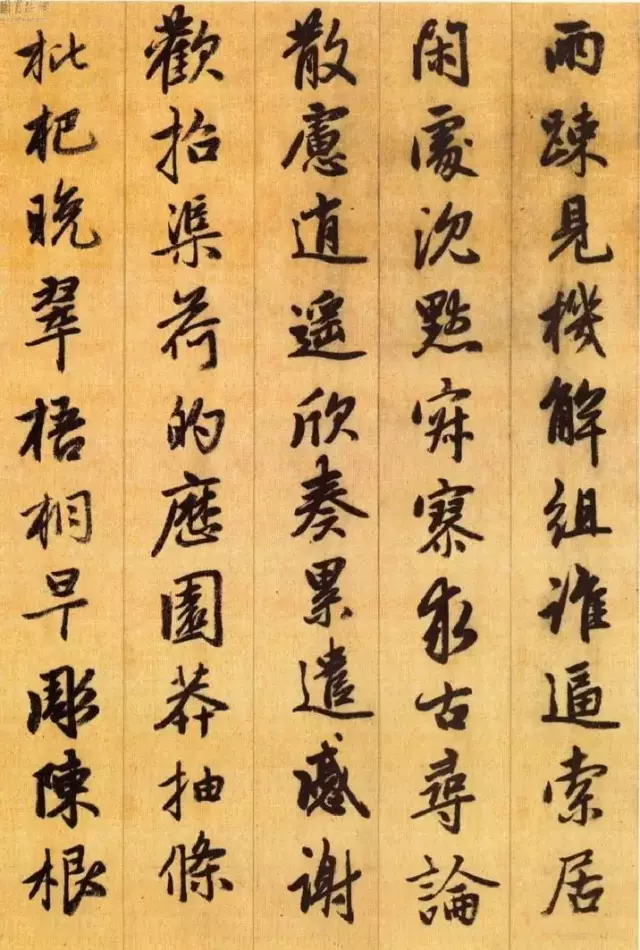 兩踈見機解組誰逼索居
閑處沈黙寂寥求古尋論
散慮逍遙欣奏累遣慼謝
歡招渠荷的歷園莽抽條
枇杷晚翠梧桐早彫陳根